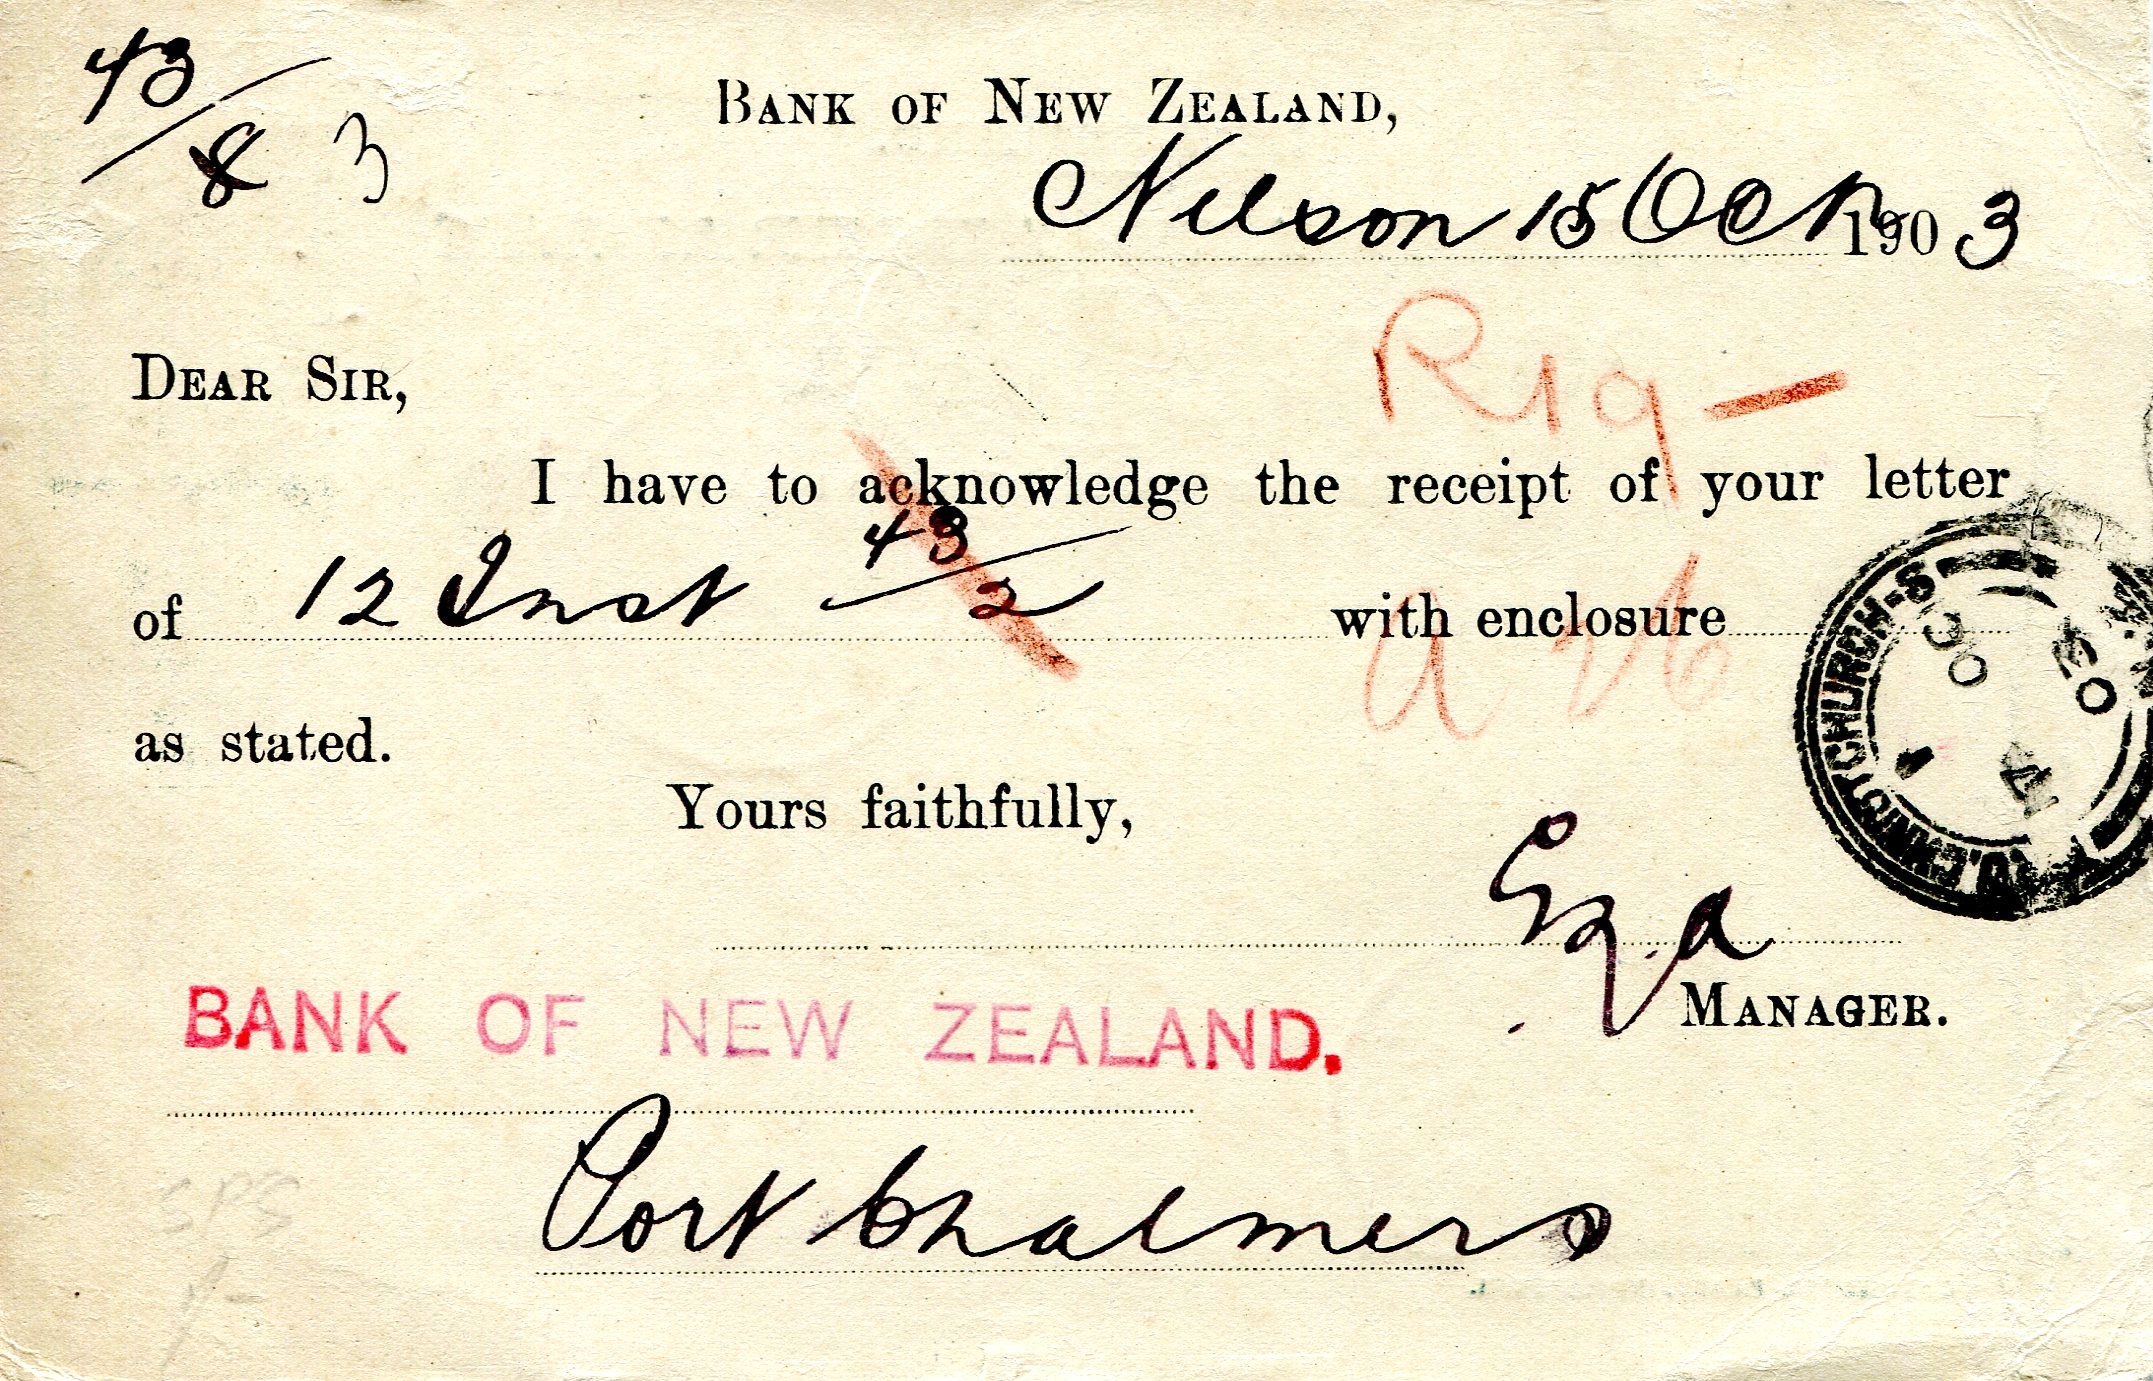 43/8 3
BANK OF NEW ZEALAND,
Nelson 15 Oct 1903
R19 -
DEAR SIR,
I have to acknowledge the receipt of your letter
of 12 Inst 43/2 with enclosure
as stated.
Yours faithfully,
MANAGER.
BANK OF NEW ZEALAND.
Port Chalmers
CHRISTCHURCH-S
OC
03